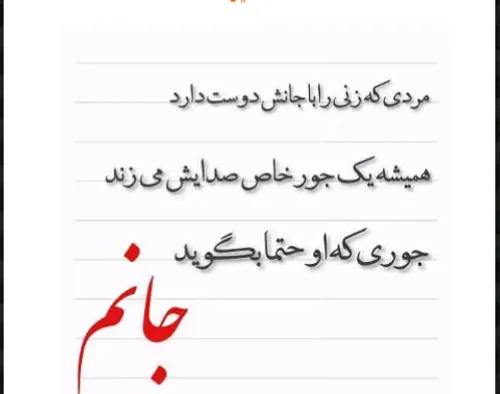 مردی که زنی را با جانش دوست دارد
همیشه یک جور خاص صدایش می زند
جوری که او حتما بگوید
جانم